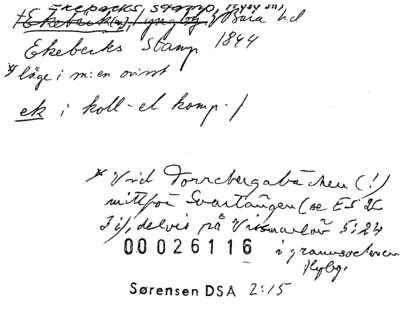 Ekebecks stamp, nyby sn,
†Ekebeck(s), nyby, Bara hd
Ekebecks Stamp 1844
* läge i m:en ovisst
ek i koll- el komp-/
* Vid Torrebergabäcken (!)
mitt för Svartängen (se E5 2C
3 i), delvis på Vismarlöv 5:24
i grannsocknen
Hyby.
00026116
Sørensen DSA 2:15